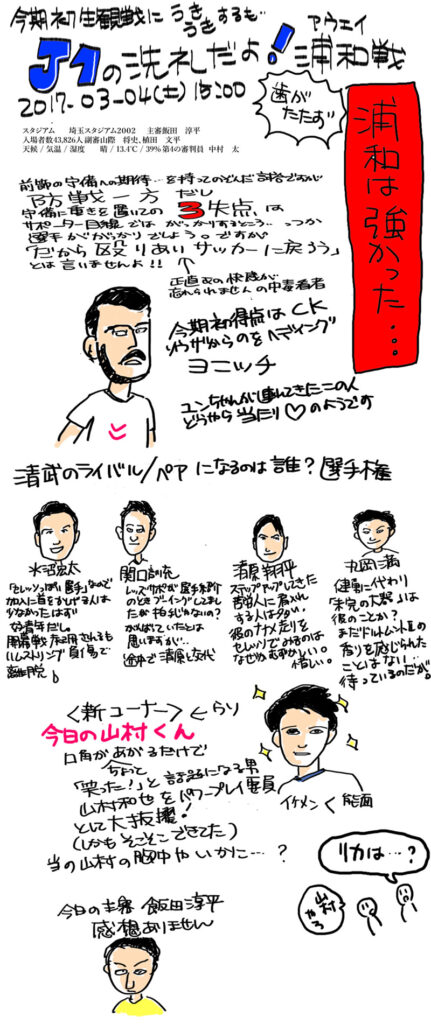 今期初生観戦にうきうきするも‥
J1の洗礼だよ! アウェイ 浦和戦
2017-03-04(土) 15:00
スタジアム 埼玉スタジアム2002 主審飯田 淳平
入場者数43,826人 副審山際 将史、植田 文平
天候 / 気温 / 湿度 晴 / 13.4℃ / 39% 第4の審判員 中村 太
歯がたたず
浦和は強かった…
前節の守備への期待…を持ってのぞんだ試合ですが
防戦一方だし
守備に重きを置いての3失点は
サポーター目線ではがっかりするところ‥っつか
選手ががっかりでしょう。ですが
「だから殴りあいサッカーに戻ろう」
とは言いませんよ!!
正直あの快感が
忘れられませんの中毒者者
今期初得点はCK
ソウザからのをヘディング
ヨニッチ
ユンちゃんが連れてきたこの人
どうやら当たり♡のようです
清武のライバル/ペアになるのは誰?選手権
水沼宏太
「セレッソっぽい選手」なので
加入に首をかしげる人は
少なかったはず
好青年だし。
開幕戦起用されるも
ハムストリング負傷で
離脱
関口訓充
レッズサポが選手紹介
のときブーイングしてまし
たがお相手じゃないの?
がんばっていたとは
思いますが…
途中で清原と交代
清原翔平
ステップアップしてきた
苦労人に肩入れ
する人は多い。
彼のナナメ走りを
セレッソでみるのは
なぜかむずかしい。
惜しい。
丸岡満
健勇に代わり
「未完の大器」は
彼のことか?
まだドルトムントIIの
香りを感じられた
ことはない…
待っているのだが。
<新コーナー>
今日の山村くん
口角があがるだけで
ちょって
「笑った!」と言われる男
山村和也をパワープレイ要員
として大抜擢!
(しかもそこそこできてた)
当の山村の胸中やいかに…?
イケメン<能面
リカは…?
山村やろ
今日の主審 飯田淳平
感想ありません